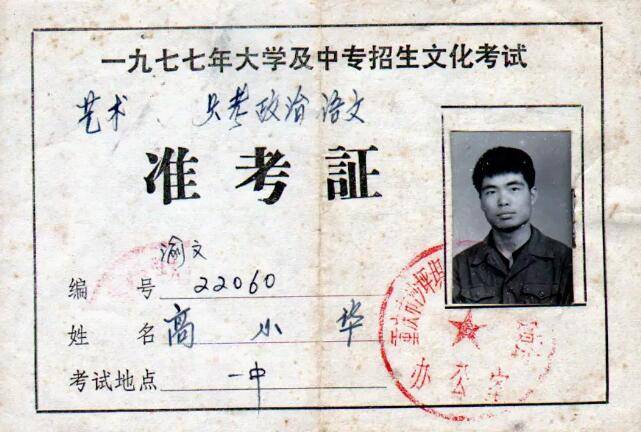 一九七七年大学及中专招生文化考试
艺术、只考政治语文
准考証
渝文
编号 22060
姓名 高小华
考试地点 一中
重庆市沙坪坝
办公室